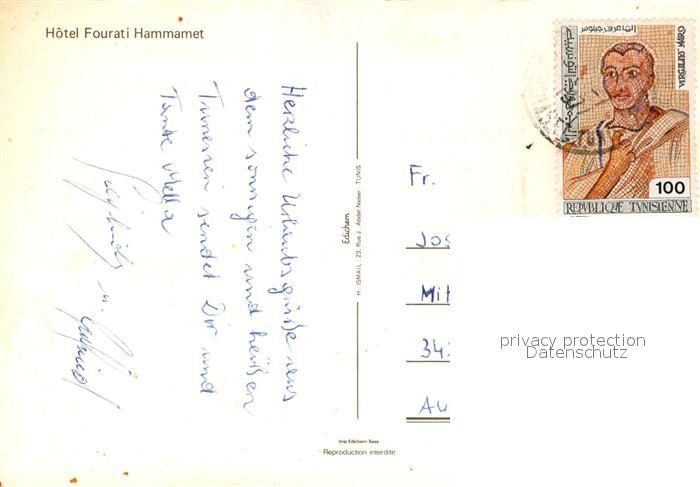 Hôtel Fourati Hammamet
Herzliche Urlaubsgrüße aus
dem sonnigen und heißen
Tunesien sendet Dir und
Tante Mella
Edichem
H. ISMAIL : 23, Rue J. Abdel Nasser TUNIS
Imp Edichem-Tunis
Reproduction interdite
VIRGILIUS MARO
100
REPUBLIQUE TUNISIENNE
Fr.
Jos
Mit
34
Au
privacy protection
Datenschutz